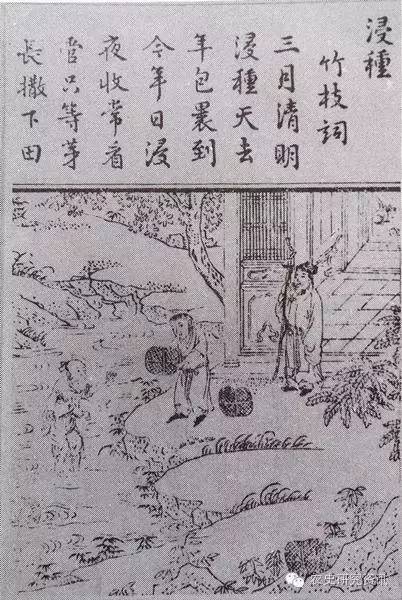 浸種
竹枝詞
三月清明
浸種天去
年包裹到
今年日浸
夜收常看
管只等芽
長撒下田
农史研究资讯